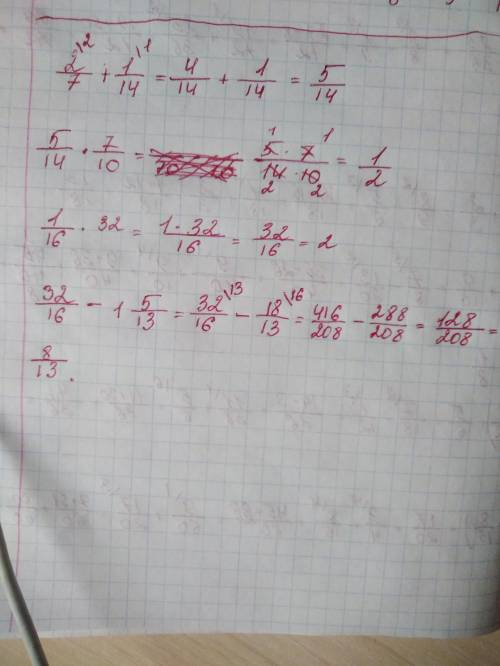 2/7\2 + 1/14\1 = 4/14 + 1/14 = 5/14
5/14 · 7/10 = 5 · 7/14 · 10 = 1/2
1/16 · 32 = 1 · 32/16 = 32/16 = 2
32/16 - 1 5/13 = 32/16\13 - 18/13\16 = 416/208 - 288/208 = 128/208 =
8/13.